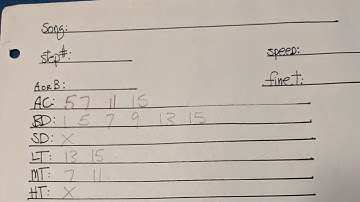 Song:
Step#: speed:
A or B: fine t:
AC: 5 7 11 15
BD: 1 5 7 9 13 15
SD: X
LT: 13 15
MT: 7 11
HT: X